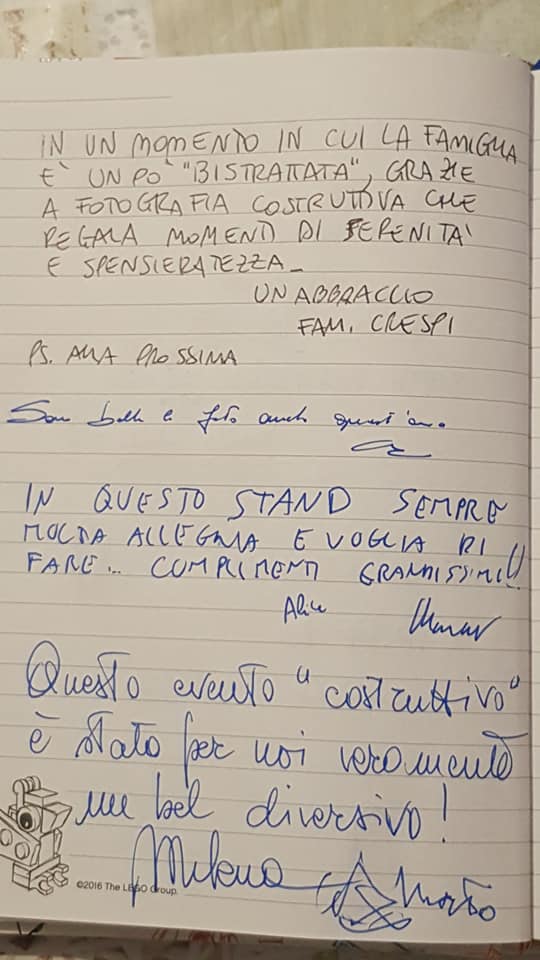 IN UN MOMENTO IN CUI LA FAMIGLIA
E' UN PO' "BISTRATTATA", GRAZIE
A FOTOGRAFIA COSTRUTTIVA CHE
REGALA MOMENTI DI SERENITA'
E SPENSIERATEZZA_
UN ABBRACCIO
FAM. CRESPI
PS. ALLA PROSSIMA
belle foto anch quest'anno.
IN QUESTO STAND SEMPRE
MOLTA ALLEGRIA E VOGLIA DI
FARE... COMPLIMENTI GRANDISSIMI!!
Alice
Questo evento "costruttivo"
è stato per noi veramente
un bel diversivo!
Milena
©2016 The LEGO Group.